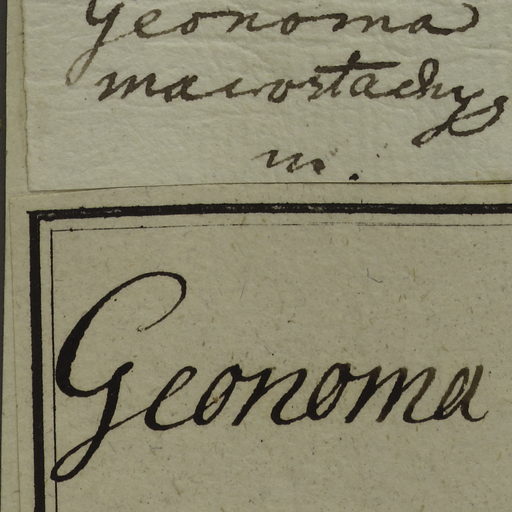 Geonoma
macrostachys
m.
Geonoma